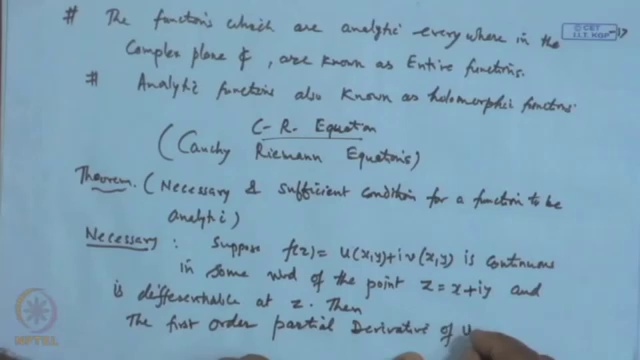 # The functions which are analytic everywhere in the
Complex plane ₵, are known as Entire functions.
# Analytic functions also known as holomorphic functions.
C-R. Equation
(Cauchy Riemann Equations)
Theorem. (Necessary & sufficient condition for a function to be
analytic)
Necessary : Suppose f(z) = u(x,y)+iv(x,y) is continuous
in some nbd of the point z = x+iy and
is differentiable at z. Then
The first order partial Derivative of u
© CET
I.I.T. KGP
NPTEL